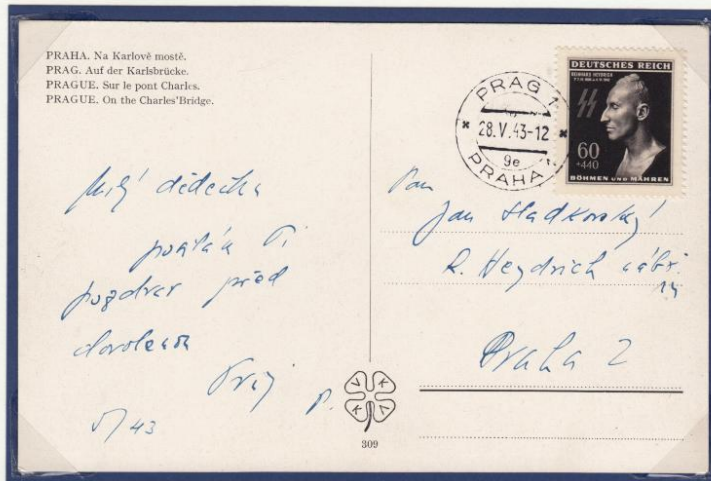 PRAHA. Na Karlově mostě.
PRAG. Auf der Karlsbrücke.
PRAGUE. Sur le pont Charles.
PRAGUE. On the Charles'Bridge.
Milý dědečku
posílám Ti
pozdrav před
dovolenou
Tvůj P.
5/43
309
V K
K V
PRAG 1
28.V.43-12
9e
PRAHA 1
DEUTSCHES REICH
REINHARD HEYDRICH
60
+440
BÖHMEN UND MÄHREN
Pan
Jan Hladkovský
R. Heydrich nábř.
Praha 2